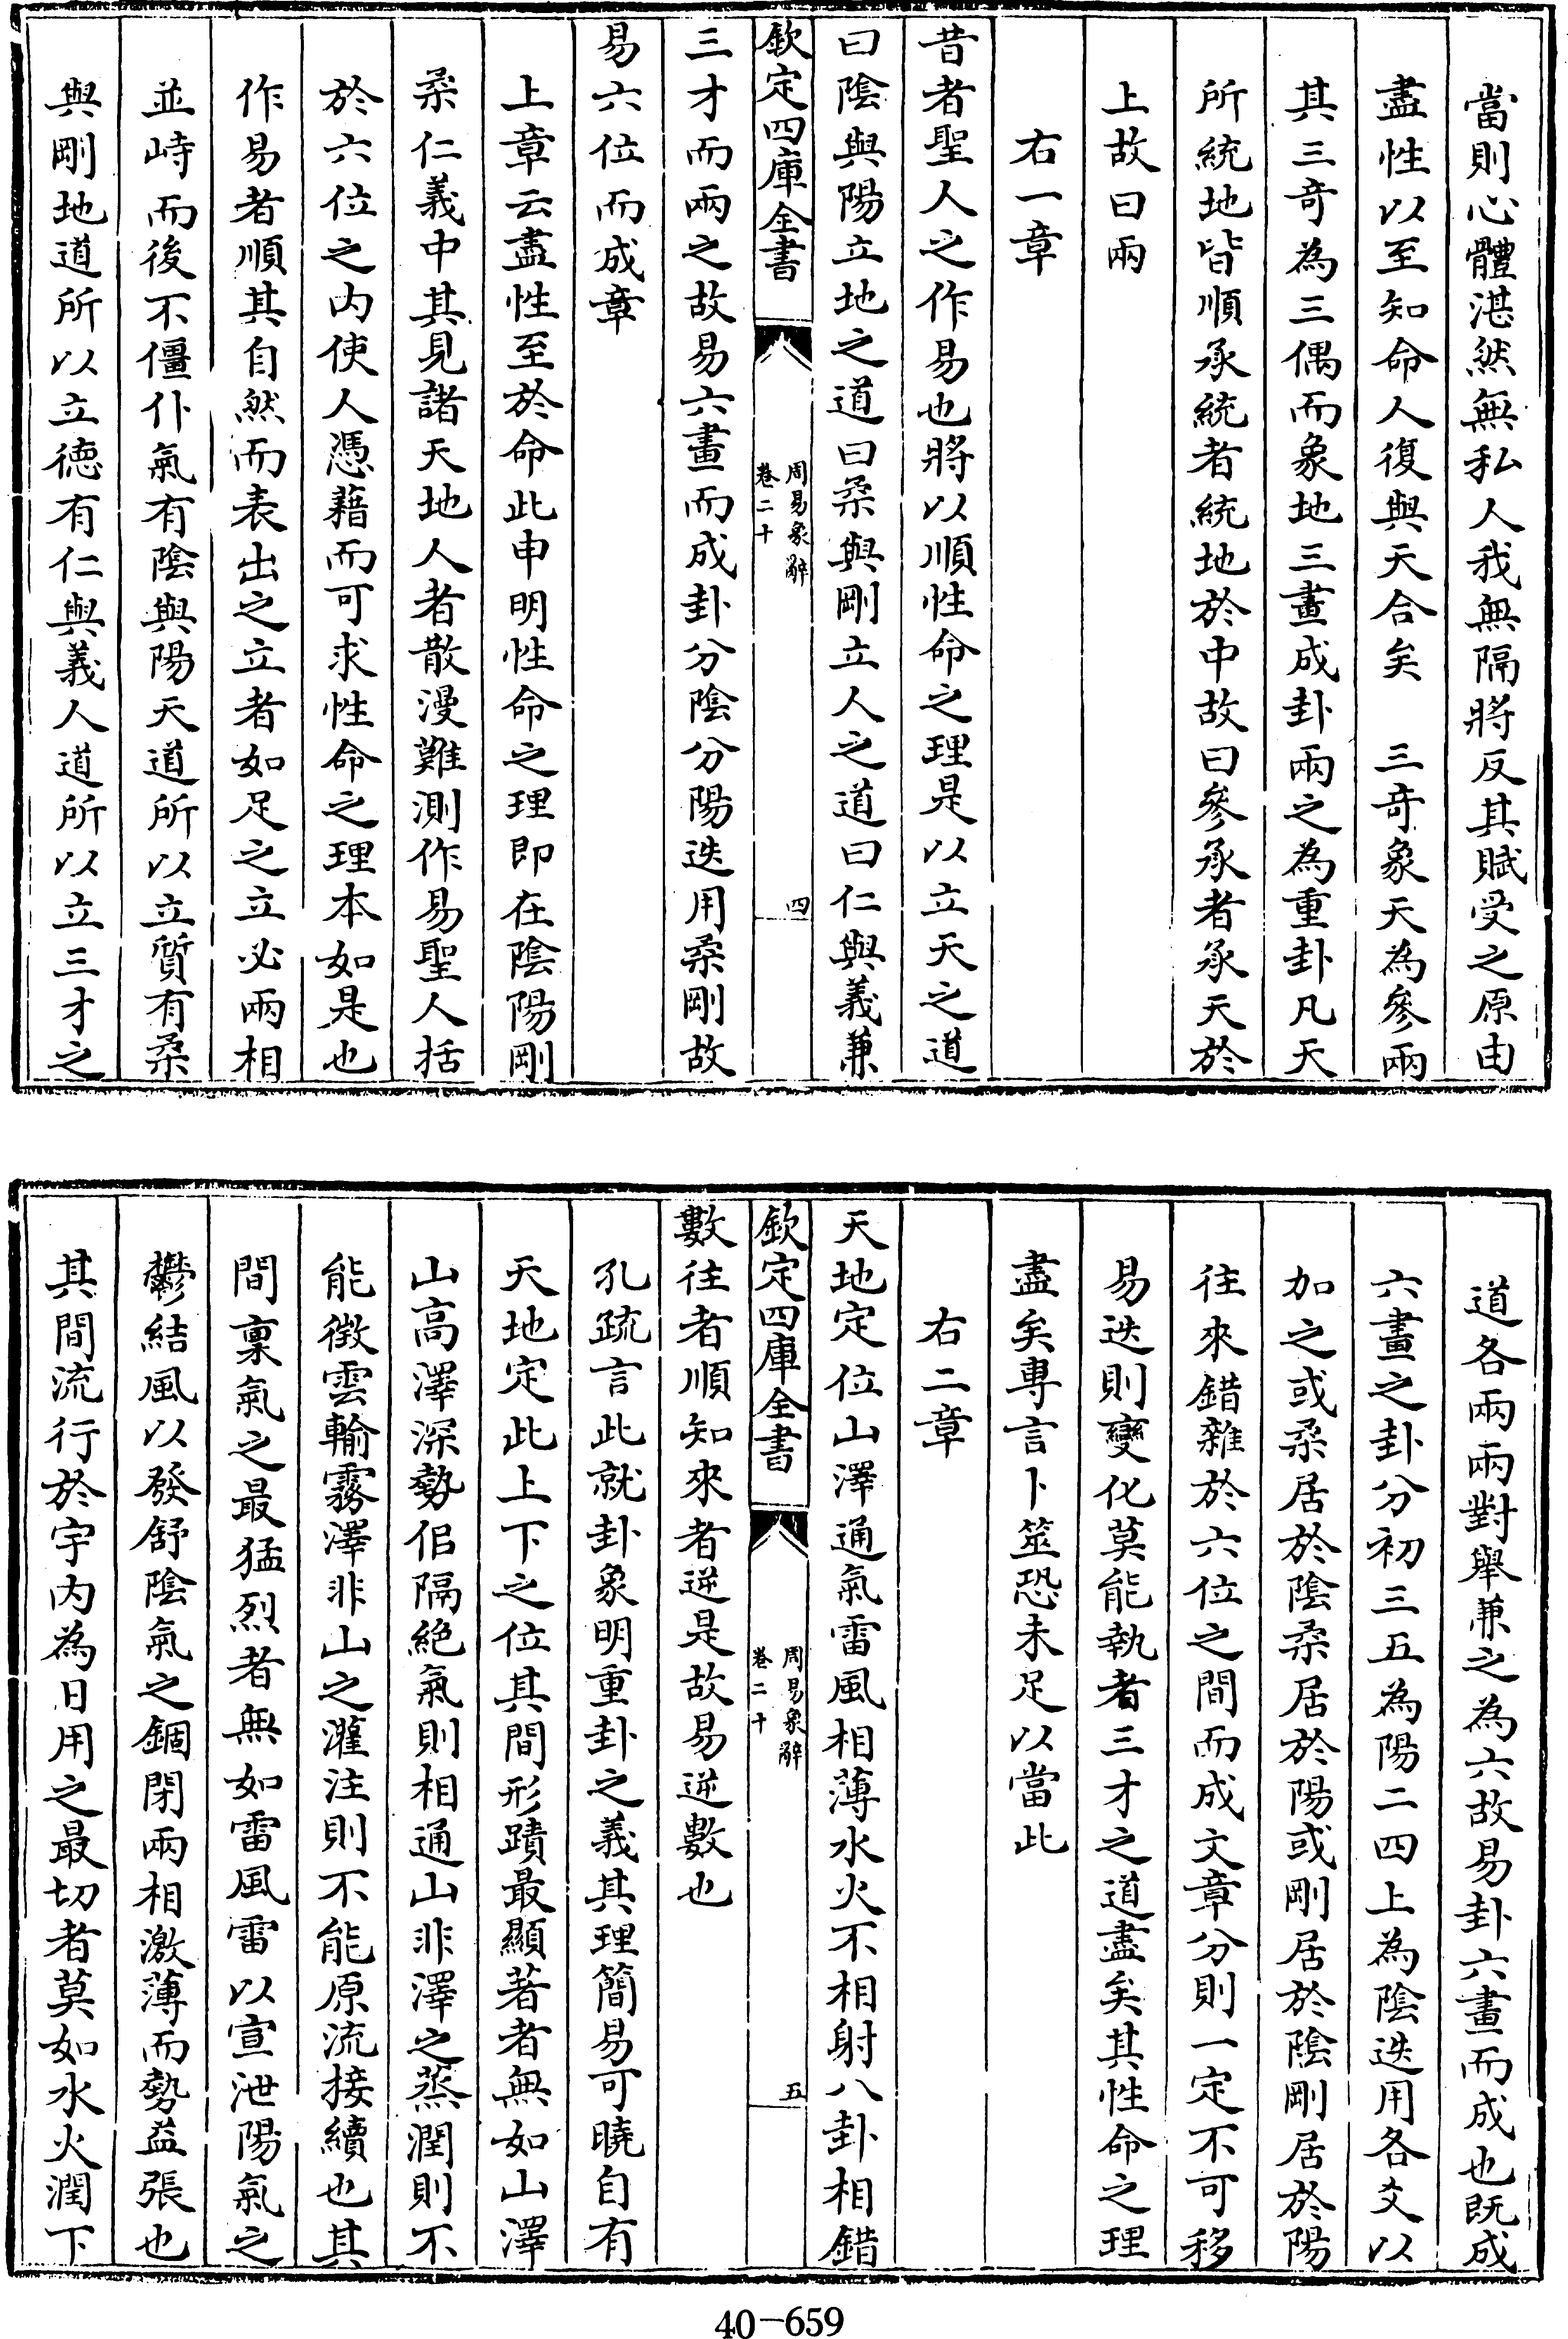 當則心體湛然無私人我無隔將反其賦受之原由
盡性以至知命人復與天合矣　三奇象天為參兩
其三奇為三偶而象地三畫成卦兩之為重卦凡天
所統地皆順承統者統地於中故曰參承者承天於
上故曰兩
右一章
昔者聖人之作易也將以順性命之理是以立天之道
曰陰與陽立地之道曰柔與剛立人之道曰仁與義兼
欽定四庫全書
周易象辭
卷二十
四
三才而兩之故易六畫而成卦分陰分陽迭用柔剛故
易六位而成章
上章云盡性至於命此申明性命之理即在陰陽剛
柔仁義中其見諸天地人者散漫難測作易聖人括
於六位之內使人憑藉而可求性命之理本如是也
作易者順其自然而表出之立者如足之立必兩相
並峙而後不僵仆氣有陰與陽天道所以立質有柔
與剛地道所以立德有仁與義人道所以立三才之
道各兩兩對舉兼之為六故易卦六畫而成也既成
六畫之卦分初三五為陽二四上為陰迭用各爻以
加之或柔居於陰柔居於陽或剛居於陰剛居於陽
往來錯雜於六位之間而成文章分則一定不可移
易迭則變化莫能執者三才之道盡矣其性命之理
盡矣專言卜筮恐未足以當此
右二章
天地定位山澤通氣雷風相薄水火不相射八卦相錯
欽定四庫全書
周易象辭
卷二十
五
數往者順知來者逆是故易逆數也
孔疏言此就卦象明重卦之義其理簡易可曉自有
天地定此上下之位其間形蹟最顯著者無如山澤
山高澤深勢侶隔絕氣則相通山非澤之蒸潤則不
能徴雲輸霧澤非山之灌注則不能原流接續也其
間稟氣之最猛烈者無如雷風雷以宣泄陽氣之
鬱結風以發舒陰氣之錮閉兩相激薄而勢益張也
其間流行於宇內為日用之最切者莫如水火潤下
40-659